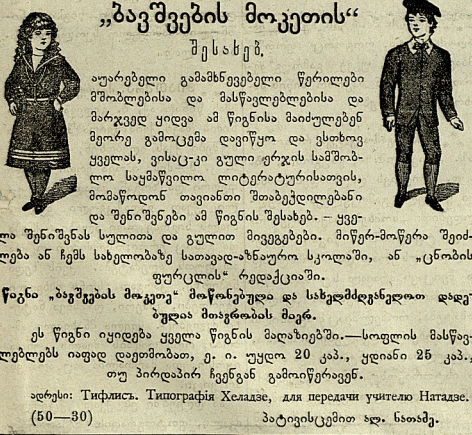 „ბავშვების მოკეთის“
შესახებ.
აუარებელი გამამხნევებელი წერილები
მშობლებისა და მასწავლებლებისა და
მარჯვედ ყიდვა ამ წიგნისა მაიძულებენ
მეორე გამოცემა დავიწყო და ვსთხოვ
ყველას, ვისაც-კი გული ერჯის სამშობ-
ლო საყმაწვილო ლიტერატურისათვის,
მომაწოდონ თავიანთი შთაბეჭდილებანი
და შენიშვნები ამ წიგნის შესახებ. – ყვე-
ლა შენიშვნას სულითა და გულით მივეგებები. მიწერ-მოწერა შეიძ-
ლება ან ჩემს სახელობაზე სათავად-აზნაურო სკოლაში, ან „ცნობის
ფურცლის“ რედაქციაში.
წიგნი „ბავშვების მოკეთე“ მოწონებული და სახელმძღვანელოთ დადე-
ბულია მთავრობის მიერ.
ეს წიგნი იყიდება ყველა წიგნის მაღაზიებში.—სოფლის მასწავ-
ლებლებს იაფად დაეთმობათ, ე. ი. უყდო 20 კაპ., ყდიანი 25 კაპ.,
თუ პირდაპირ ჩვენგან გამოიწერავენ.
ადრესი: Тифлисъ. Типографія Хеладзе, для передачи учителю Натадзе.
(50—30) პატივისცემით ალ. ნათაძე.